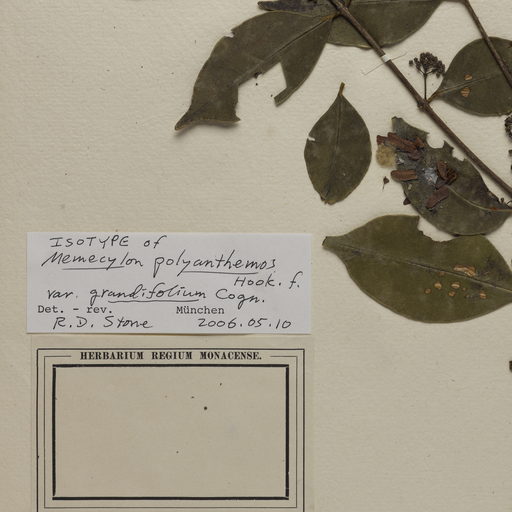 ISOTYPE of
Memecylon polyanthemos
Hook. f.
var. grandifolium Cogn.
Det. - rev. München
R.D. Stone 2006.05.10
HERBARIUM REGIUM MONACENSE.